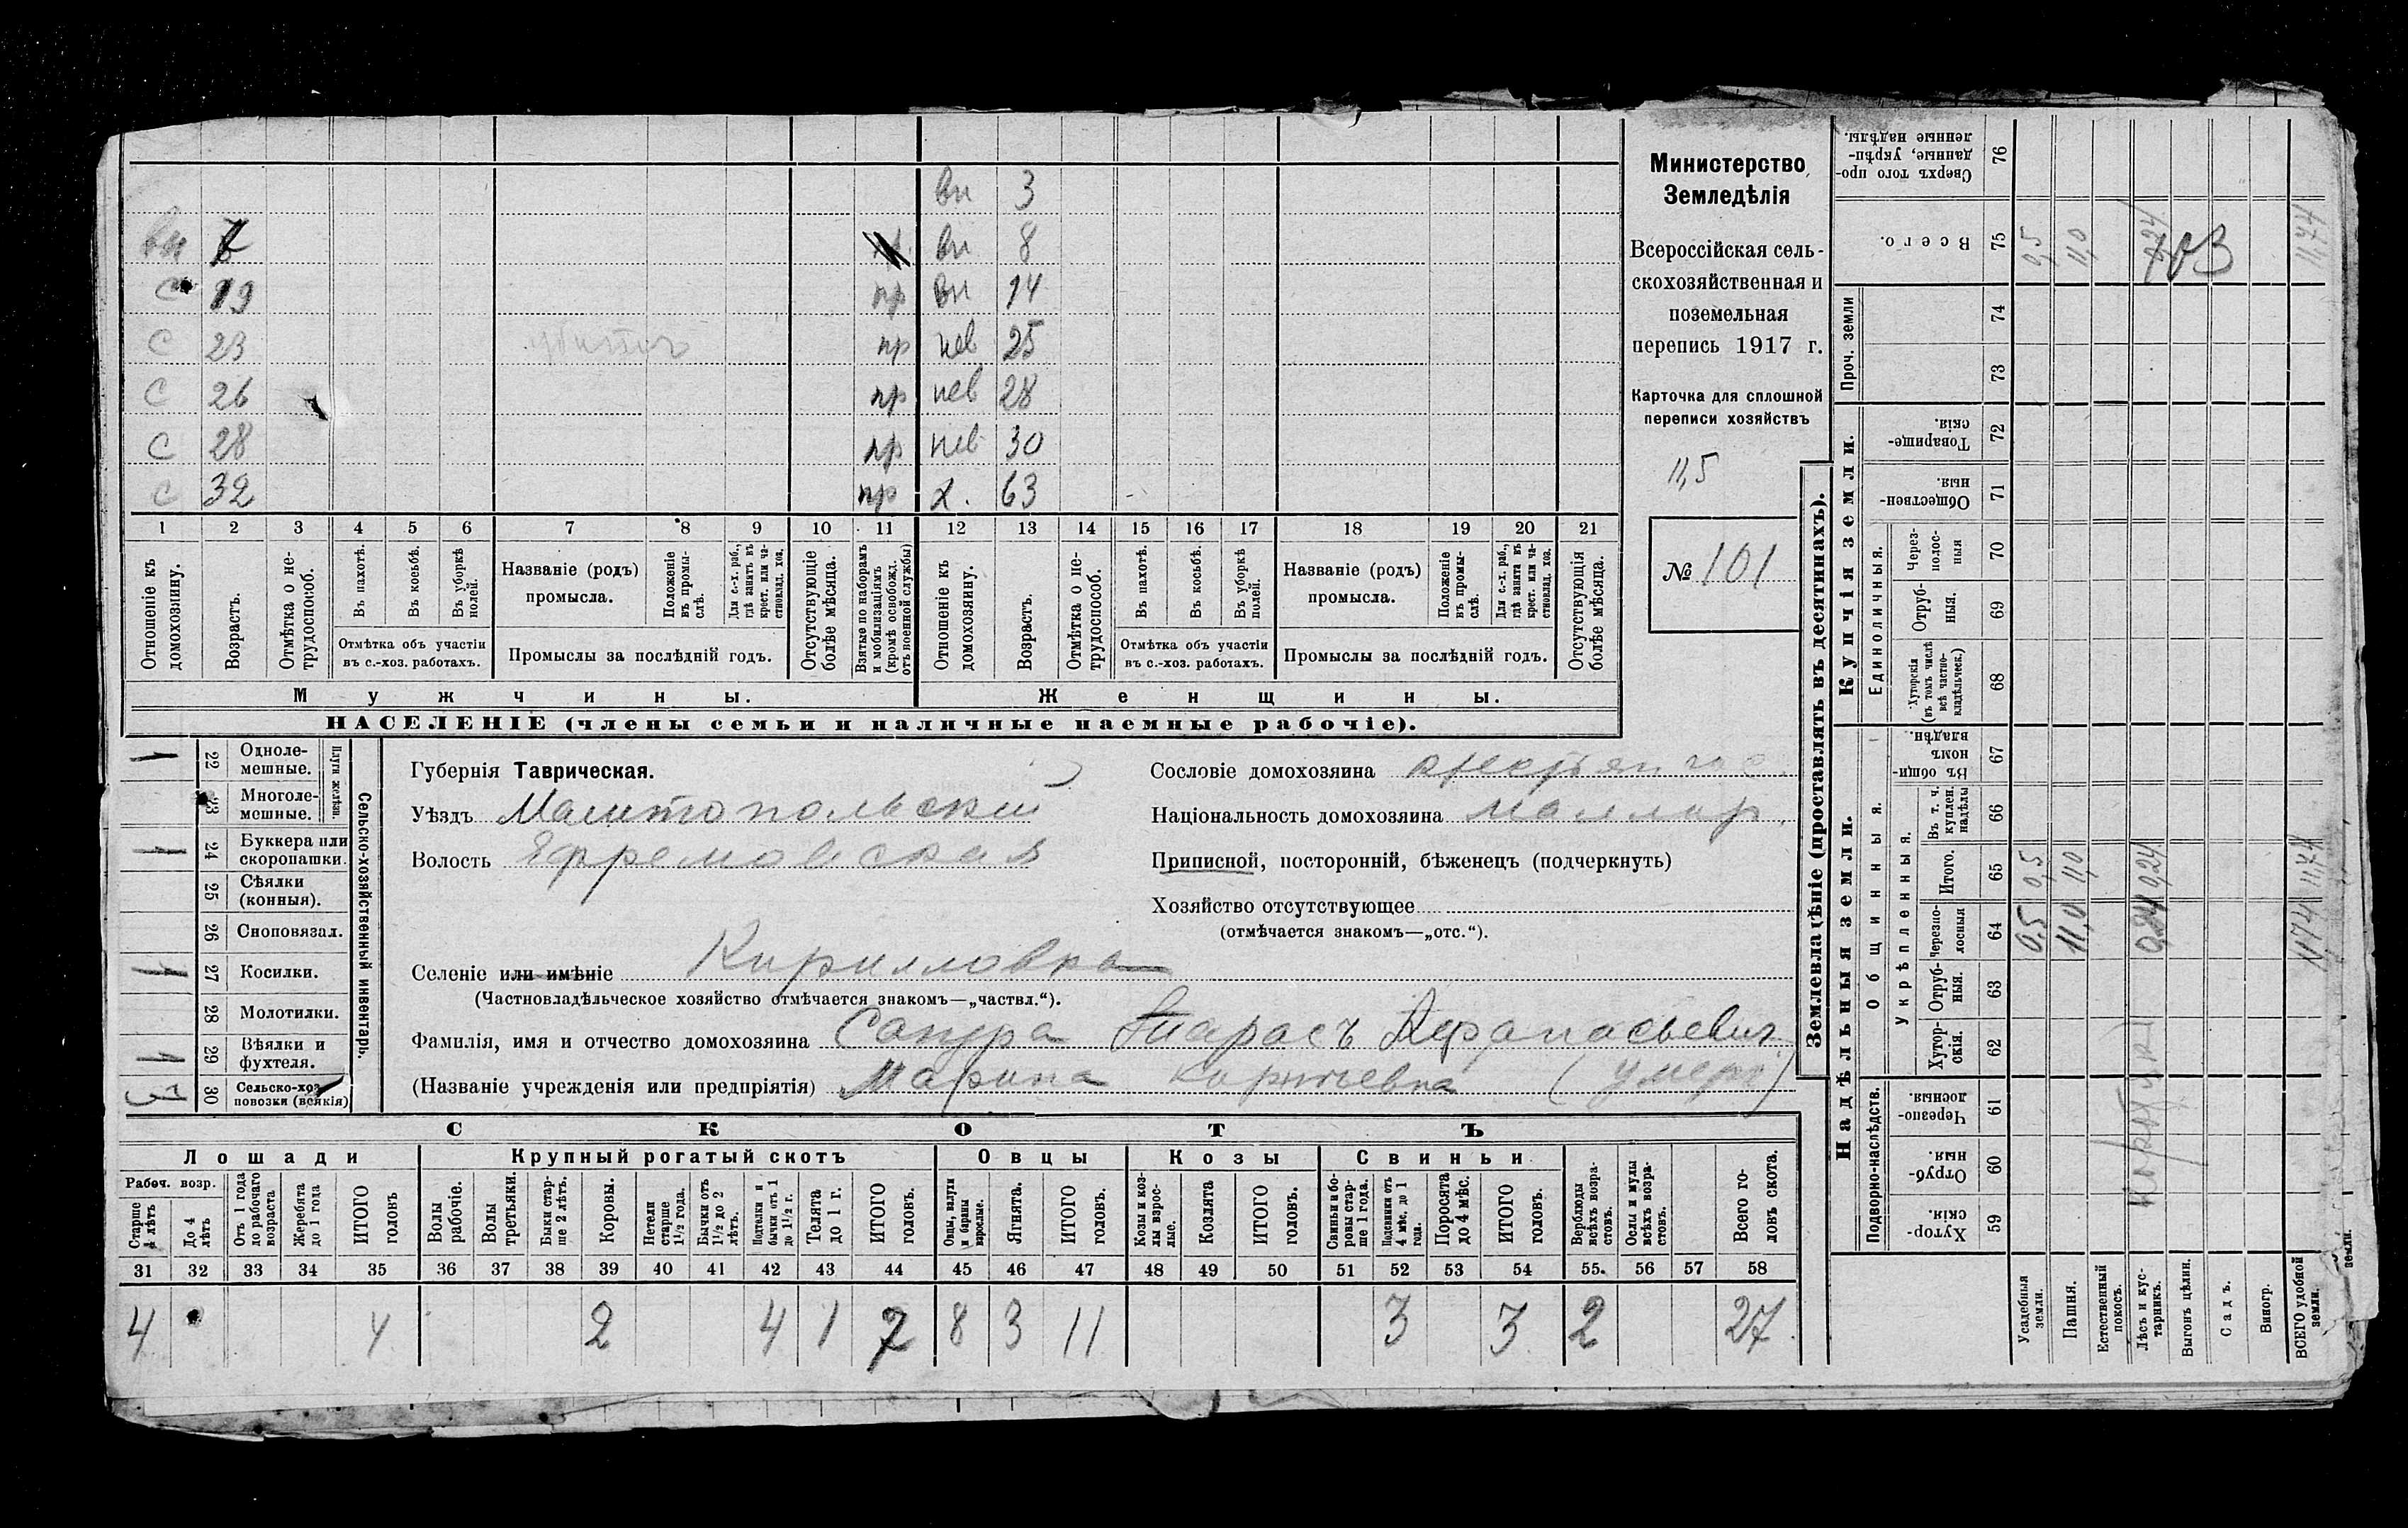 вн 3
вн 7 вн 8
с 19 пр вн 14
с 23 убитъ пр нев 25
с 26 пр нев 28
с 28 пр нев 30
с 32 пр х. 63
1 2 3 4 5 6 7 8 9 10 11 12 13 14 15 16 17 18 19 20 21
Отношеніе къ домохозяину.
Возрастъ.
Отмѣтка о не-трудоспособ.
Въ пахотѣ.
Въ косьбѣ.
Въ уборкѣ полей.
Отмѣтка объ участіи въ с.-хоз. работахъ.
Названіе (родъ) промысла.
Положеніе въ промы-слѣ.
Для с.-х. раб., гдѣ занятъ въ крест. или ча-стновлад. хоз.
Промыслы за послѣдній годъ.
Отсутствующіе болѣе мѣсяца.
Взятые по наборамъ и мобилизаціямъ (кромѣ освобожд. отъ военной службы)
Отношеніе къ домохозяину.
Возрастъ.
Отмѣтка о не-трудоспособ.
Въ пахотѣ.
Въ косьбѣ.
Въ уборкѣ полей.
Отмѣтка объ участіи въ с.-хоз. работахъ.
Названіе (родъ) промысла.
Положеніе въ промы-слѣ.
Для с.-х. раб., гдѣ занята въ крест. или ча-стновлад. хоз.
Промыслы за послѣдній годъ.
Отсутствующія болѣе мѣсяца.
Мужчины. Женщины.
НАСЕЛЕНІЕ (члены семьи и наличные наемные рабочіе).
Министерство
Земледѣлія
Всероссійская сель-
скохозяйственная и
поземельная
перепись 1917 г.
Карточка для сплошной
переписи хозяйствъ
11,5
№ 101
Сельско-хозяйственный инвентарь.
Плуги желѣзн.
1 22 Одноле-мешные.
23 Многоле-мешные.
1 24 Буккера или скоропашки.
25 Сѣялки (конныя).
26 Сноповязал.
1 27 Косилки.
28 Молотилки.
1 29 Вѣялки и фухтеля.
3 30 Сельско-хоз. повозки (всякія)
Губернія Таврическая.
Уѣздъ Мелитопольский
Волость Ефремовская
Сословіе домохозяина
Національность домохозяина малор.
Приписной, посторонній, бѣженецъ (подчеркнуть)
Хозяйство отсутствующее
(отмѣчается знакомъ—„отс.“).
Селеніе или имѣніе Кирилловка
(Частновладѣльческое хозяйство отмѣчается знакомъ—„частвл.“).
Фамилія, имя и отчество домохозяина Сапура Тарасъ Афанасьевич
(Названіе учрежденія или предпріятія) Марина (умеръ)
СКОТЪ
Лошади Крупный рогатый скотъ Овцы Козы Свиньи
Рабоч. возр.
Старше 4 лѣтъ
До 4 лѣтъ
Отъ 1 года до рабочаго возраста
Жеребята до 1 года
ИТОГО головъ
Волы рабочіе.
Волы третьяки.
Быки стар-ше 2 лѣтъ.
Коровы.
Нетели старше 1½ года.
Бычки отъ 1½ до 2 лѣтъ.
Подтелки и бычки отъ 1 до 1½ г.
Телята до 1 г.
ИТОГО головъ.
Овцы, валухи и бараны взрослые.
Ягнята.
ИТОГО головъ.
Козы и коз-лы взрос-лые.
Козлята
ИТОГО головъ.
Свиньи и бо-ровы стар-ше 1 года.
Подсвинки отъ 4 мѣс. до 1 года.
Поросята до 4 мѣс.
ИТОГО головъ.
Верблюды всѣхъ возра-стовъ.
Ослы и мулы всѣхъ возра-стовъ.
Всего го-ловъ скота.
31 32 33 34 35 36 37 38 39 40 41 42 43 44 45 46 47 48 49 50 51 52 53 54 55. 56 57 58
4 4 2 4 1 7 8 3 11 3 3 2 27
Землевладѣніе (проставлять въ десятинахъ).
Надѣльныя земли. Купчія земли. Проч. земли
Подворно-наслѣдств.
Общинныя.
Укрѣпленныя.
Единоличныя.
Хутор-скія. 59
Отруб-ныя. 60
Черезпо-лосныя. 61
Хутор-скія. 62
Отруб-ныя. 63
Черезпо-лосныя 64
Итого. 65
Въ т. ч. куплен. надѣлы 66
Въ общи-номъ владѣн. 67
Хуторскія (въ томъ числѣ всѣ частно-владѣльческ.) 68
Отруб-ныя. 69
Через-полос-ныя 70
Обществен-ныя. 71
Товарище-скія. 72
73
74
Всего. 75
Сверхъ того про-данные, укрѣп-ленные надѣлы. 76
Усадебныя земли. 0,5 0,5 0,5
Пашня. 11,0 11,0 11,0
Естественный покосъ.
Лѣсъ и кус-тарникъ. 0,24 0,24 0,24
703
Выгонъ цѣлин.
Садъ.
Виногр.
ВСЕГО удобной земли. 11,74 11,74 11,74
земли.